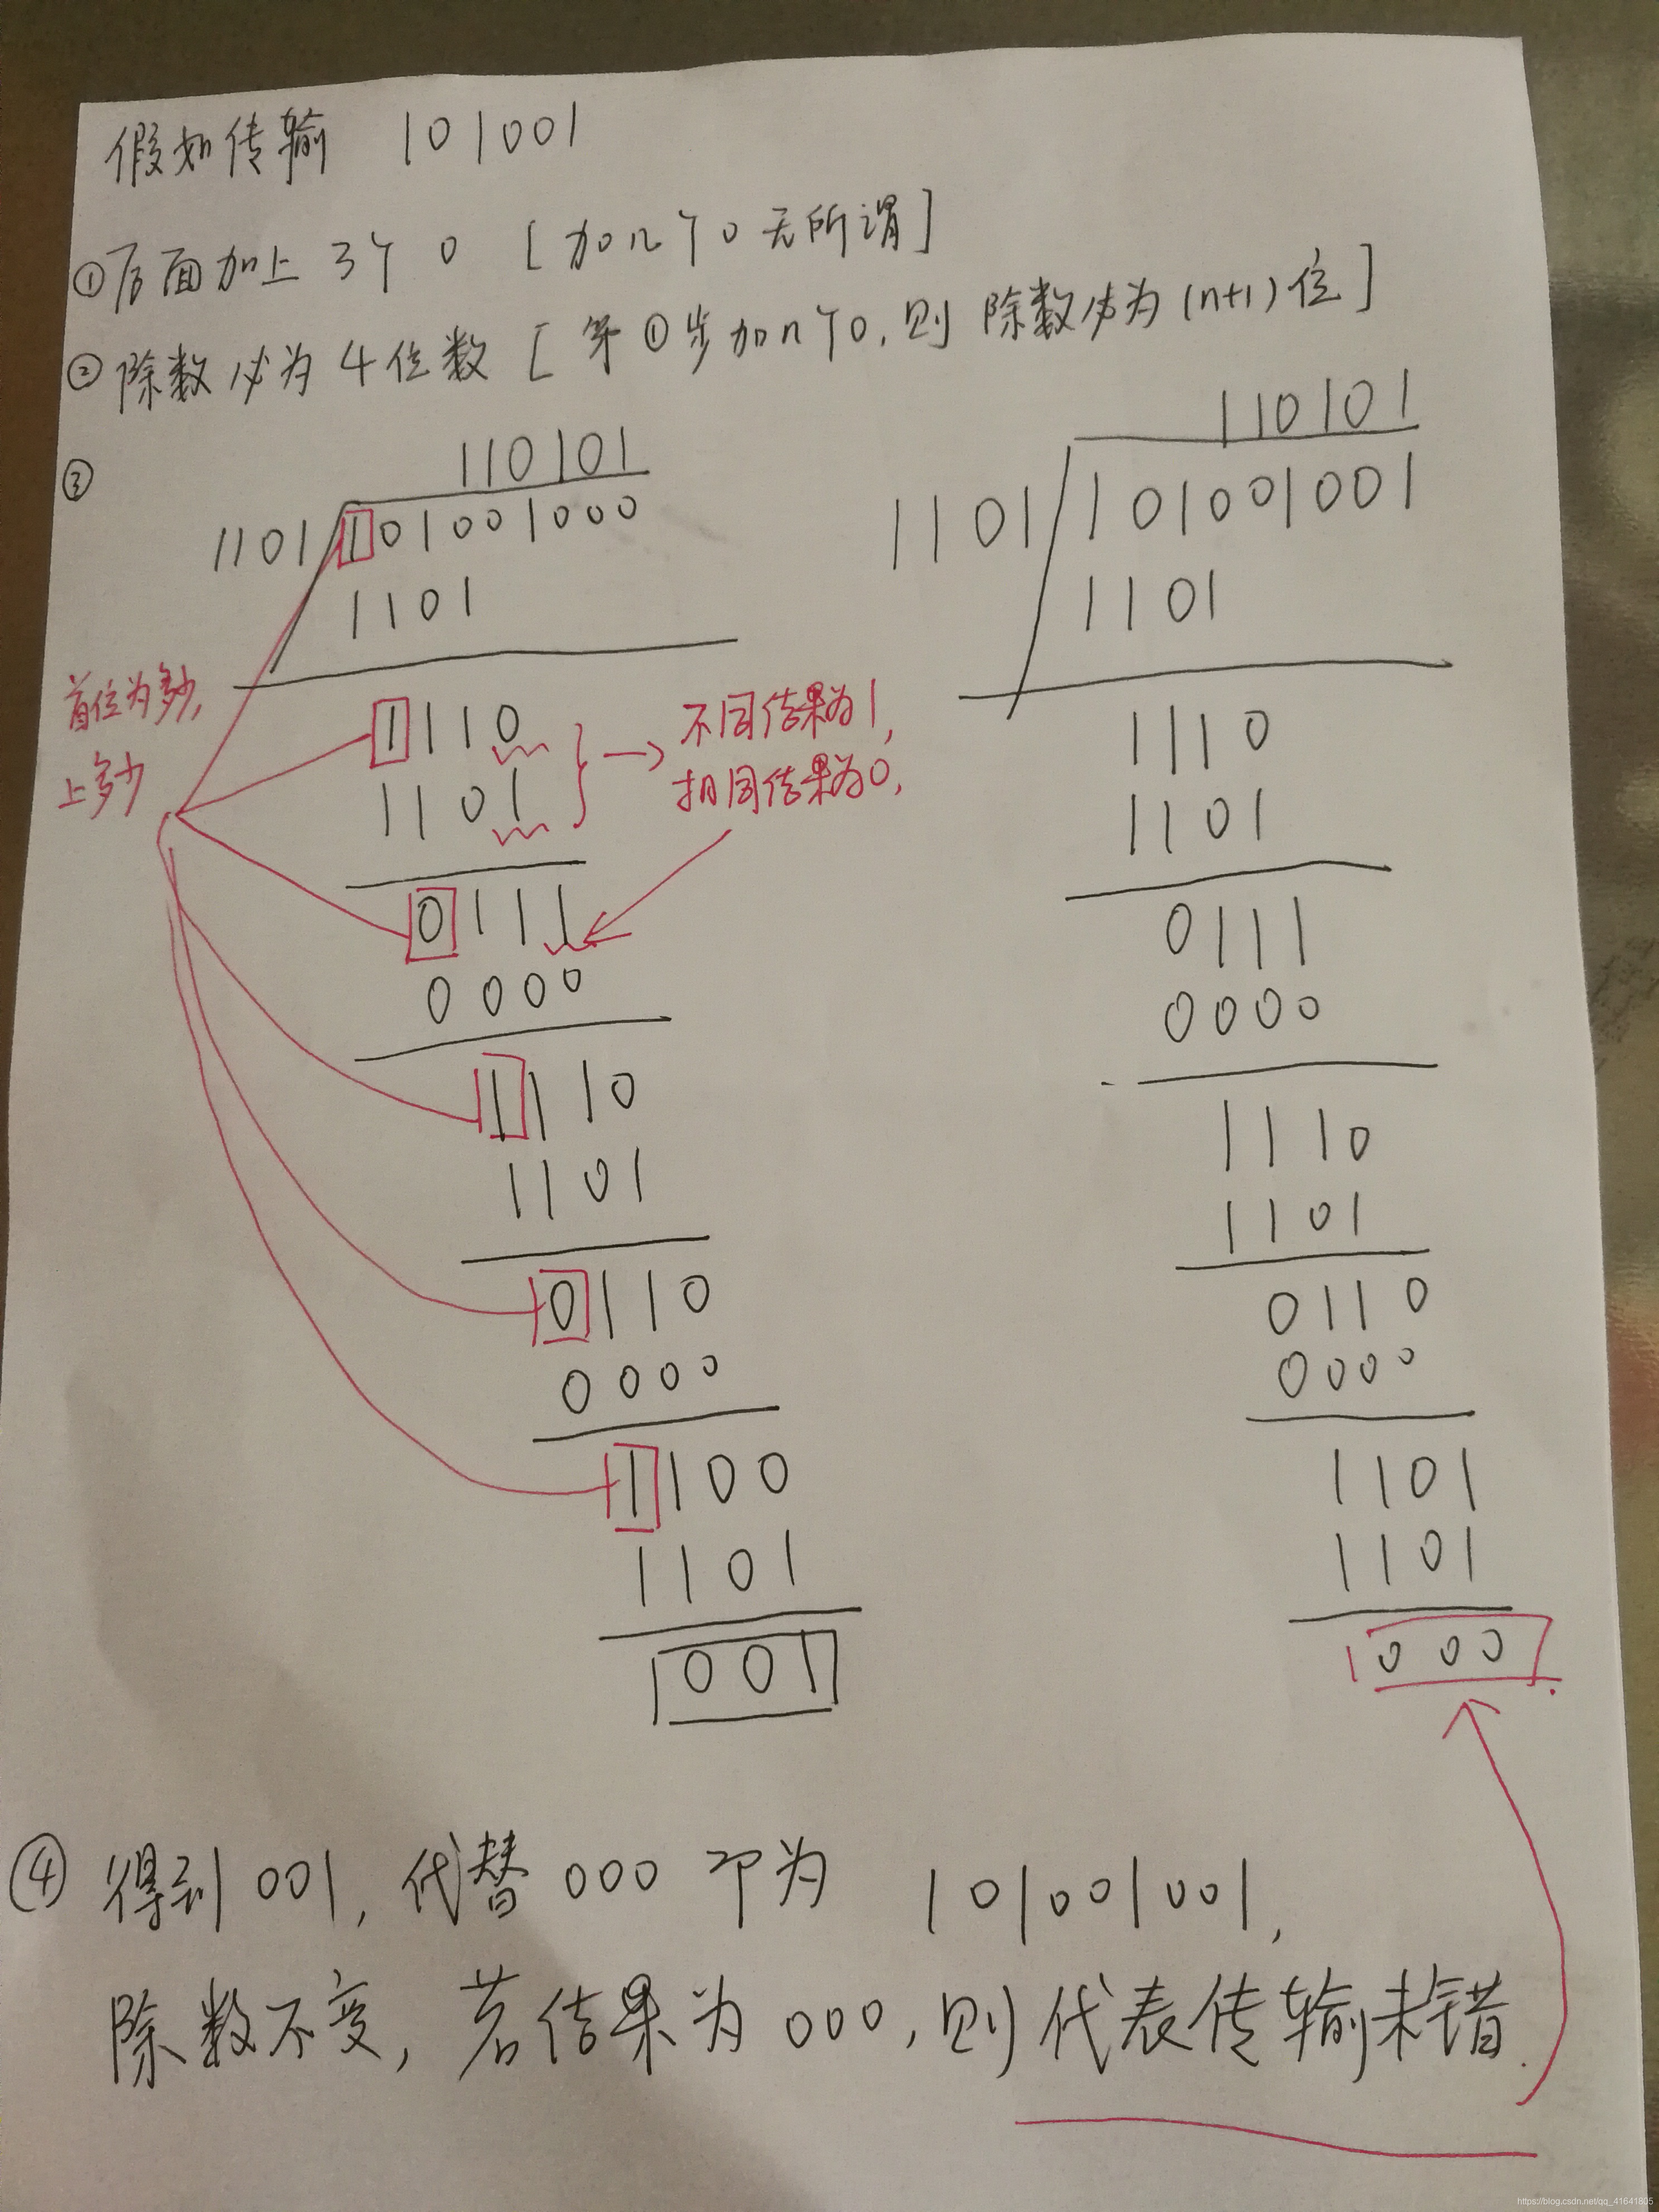 假如传输 101001
①后面加上3个0 [加n个0无所谓]
②除数必为4位数 [第①步加n个0,则除数必为(n+1)位]
③
110101
1101 101001000
1101
1110
1101
0111
0000
1110
1101
0110
0000
1100
1101
001
首位为多少,
上多少
不同结果为1,
相同结果为0,
110101
1101 101001001
1101
1110
1101
0111
0000
1110
1101
0110
0000
1101
1101
000
④得到001,代替000即为 101001001,
除数不变,若结果为000,则代表传输未错.
https://blog.csdn.net/qq_41641805